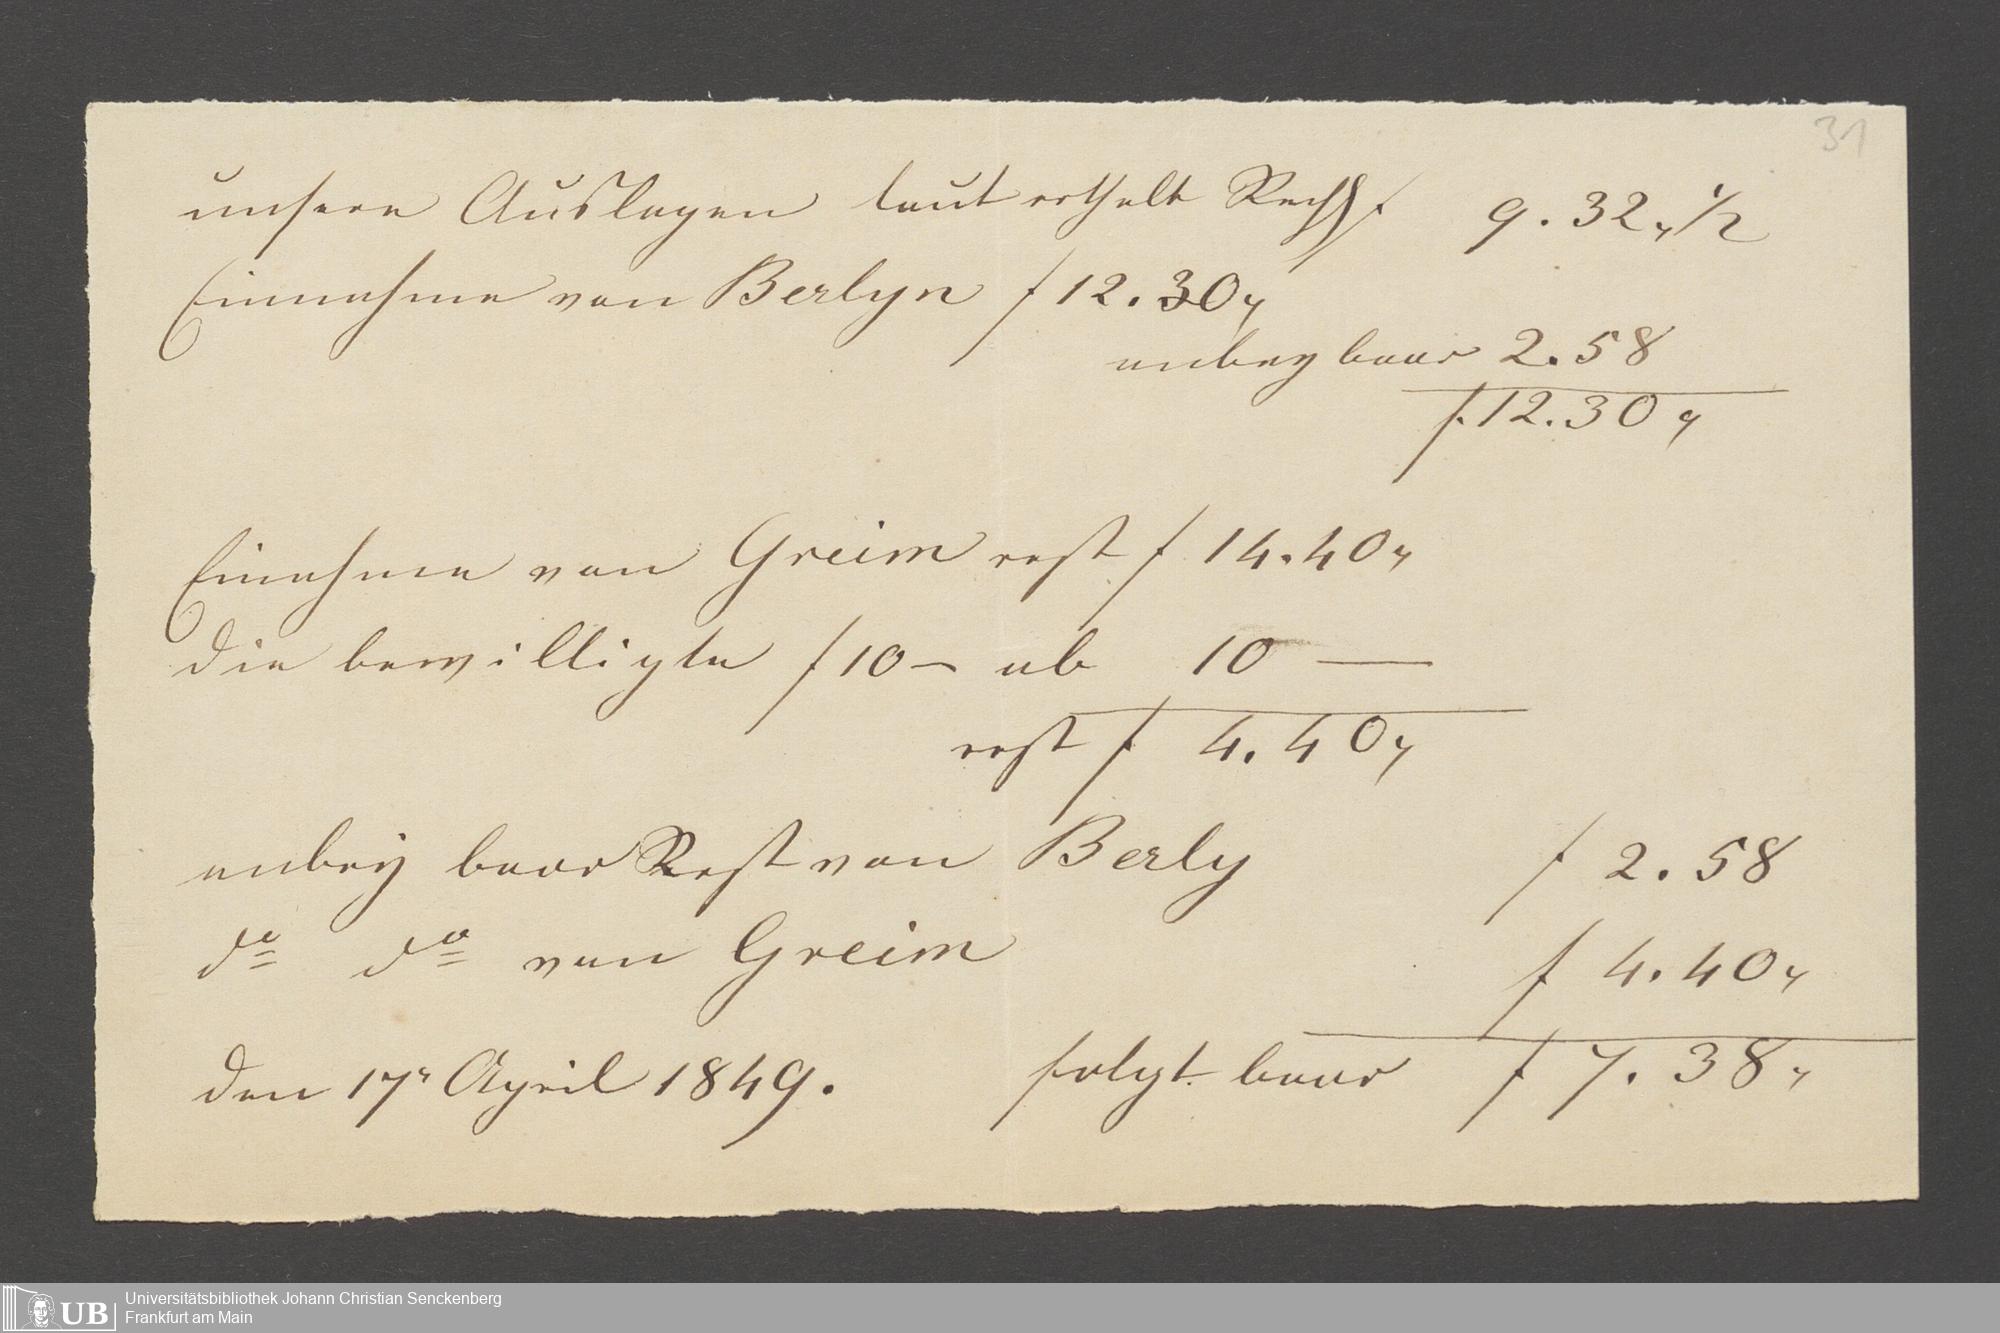 31
unsere Auslagen laut erthelt Rech f 9.32„1/2
Einnahme von Berlyn f 12.30„
anbey baar 2.58
f. 12.30„
Einahme von Greim rest f 14.40„
die bewilligte f 10 — ab 10 —
rest f 4.40„
anbey baar Rest von Berly f 2.58
do do von Greim f 4.40„
den 17r April 1849. folgt baar f 7.38„
UB
Universitätsbibliothek Johann Christian Senckenberg
Frankfurt am Main